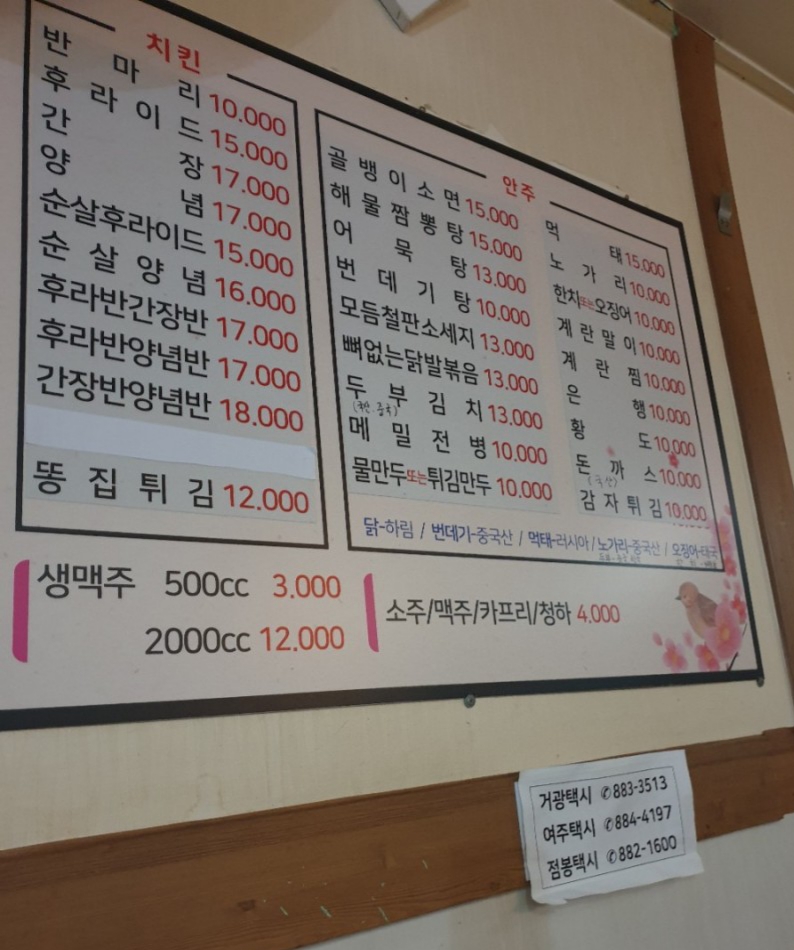 치킨
반마리 10.000
후라이드 15.000
간장 17.000
양념 17.000
순살후라이드 15.000
순살양념 16.000
후라반간장반 17.000
후라반양념반 17.000
간장반양념반 18.000
똥집튀김 12.000
안주
골뱅이소면 15.000
해물짬뽕탕 15.000
어묵탕 13.000
번데기탕 10.000
모듬철판소세지 13.000
뼈없는닭발볶음 13.000
두부김치 13.000
메밀전병 10.000
물만두또는튀김만두 10.000
먹태 15.000
노가리 10.000
한치또는오징어 10.000
계란말이 10.000
계란찜 10.000
은행 10.000
황도 10.000
돈까스 10.000
(국산)
감자튀김 10.000
닭-하림 / 번데기-중국산 / 먹태-러시아 / 노가리-중국산 / 오징어-태국
생맥주 500cc 3.000
2000cc 12.000
소주/맥주/카프리/청하 4.000
거광택시 ✆883-3513
여주택시 ✆884-4197
점봉택시 ✆882-1600